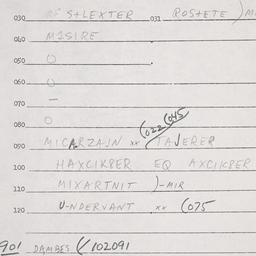 030 S+LEXTER 031 ROS+ETE )M
040 MISIRE
050 O
060 O
070 –
080 O
(022 (045
090 MICARZAJN xx TAJERER
100 HAXCIKBER EQ AXCIKBER
110 MIXARTNIT )-MIR
120 U-NDERVANT xx (075
901 DAMBES (/102091